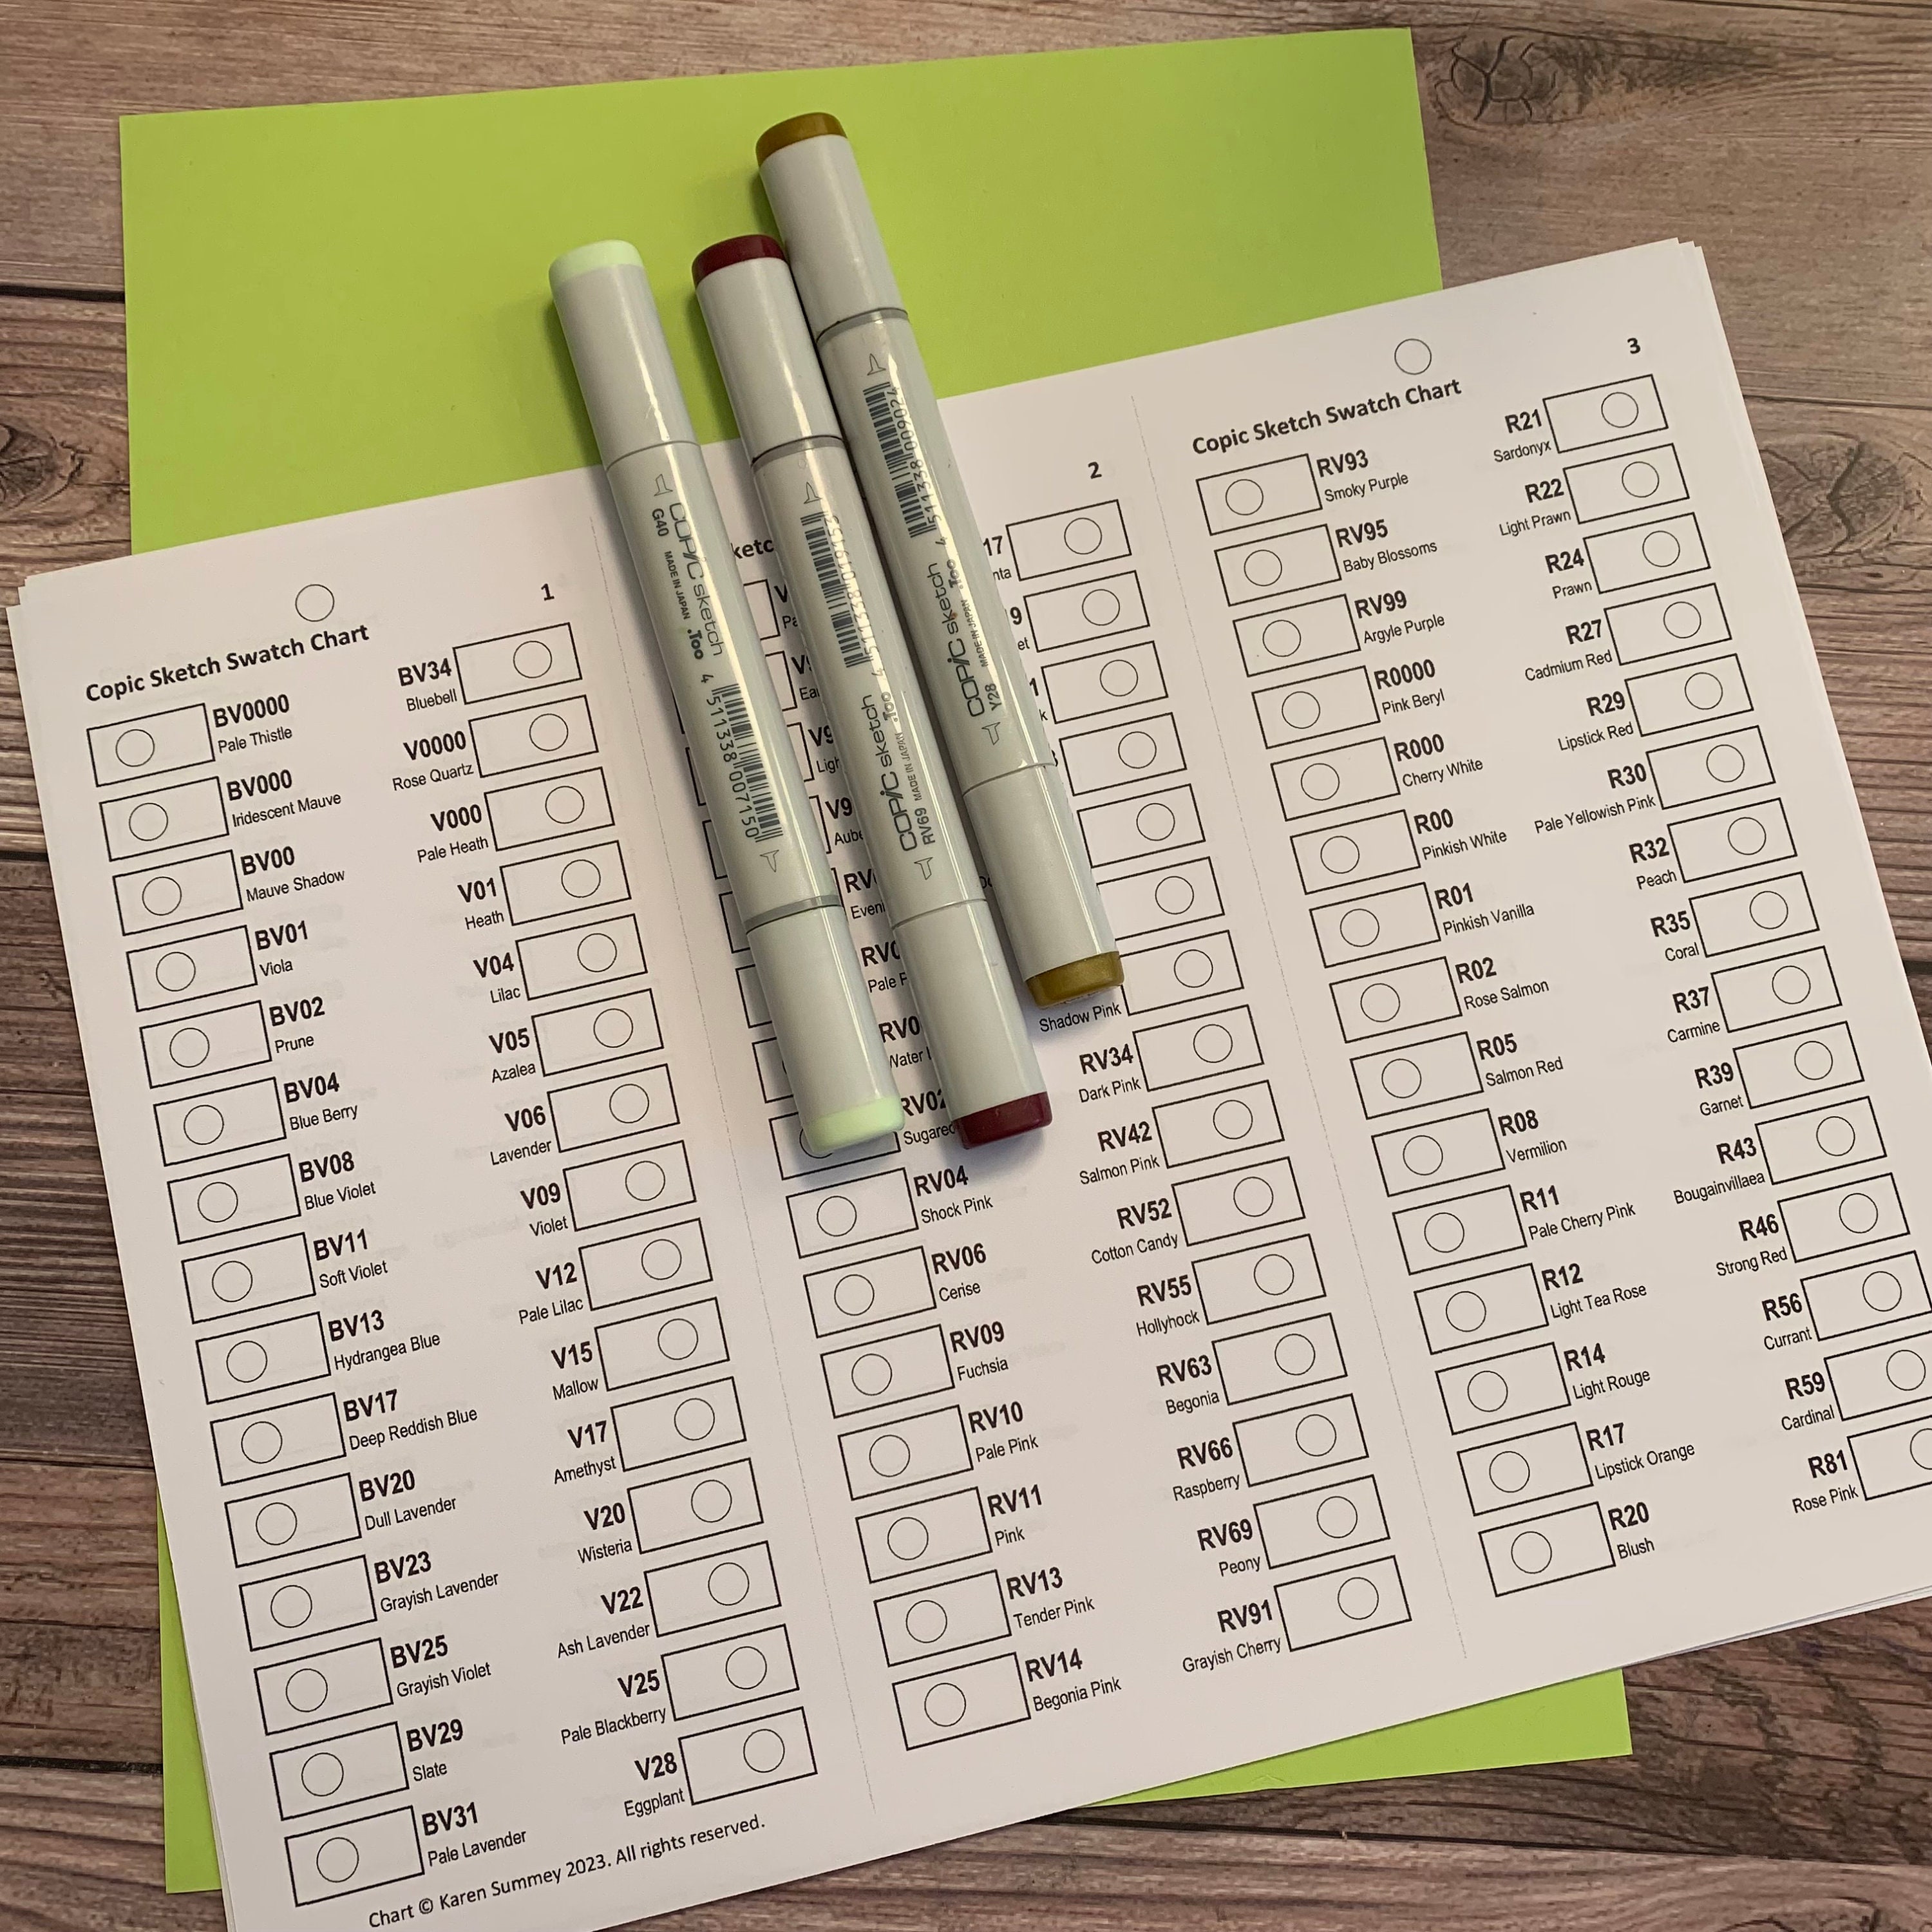 Copic Sketch Swatch Chart
1
BV0000
Pale Thistle
BV000
Iridescent Mauve
BV00
Mauve Shadow
BV01
Viola
BV02
Prune
BV04
Blue Berry
BV08
Blue Violet
BV11
Soft Violet
BV13
Hydrangea Blue
BV17
Deep Reddish Blue
BV20
Dull Lavender
BV23
Grayish Lavender
BV25
Grayish Violet
BV29
Slate
BV31
Pale Lavender
BV34
Bluebell
V0000
Rose Quartz
V000
Pale Heath
V01
Heath
V04
Lilac
V05
Azalea
V06
Lavender
V09
Violet
V12
Pale Lilac
V15
Mallow
V17
Amethyst
V20
Wisteria
V22
Ash Lavender
V25
Pale Blackberry
V28
Eggplant
Chart © Karen Summey 2023. All rights reserved.
G40
COPIC sketch
MADE IN JAPAN .Too
4 511338 007150
RV69
COPIC sketch
MADE IN JAPAN .Too
Y28
COPIC sketch
MADE IN JAPAN .Too
4 511338 009024
2
RV02
Sugared
RV04
Shock Pink
RV06
Cerise
RV09
Fuchsia
RV10
Pale Pink
RV11
Pink
RV13
Tender Pink
RV14
Begonia Pink
17
Shadow Pink
RV34
Dark Pink
RV42
Salmon Pink
RV52
Cotton Candy
RV55
Hollyhock
RV63
Begonia
RV66
Raspberry
RV69
Peony
RV91
Grayish Cherry
Copic Sketch Swatch Chart
3
RV93
Smoky Purple
RV95
Baby Blossoms
RV99
Argyle Purple
R0000
Pink Beryl
R000
Cherry White
R00
Pinkish White
R01
Pinkish Vanilla
R02
Rose Salmon
R05
Salmon Red
R08
Vermilion
R11
Pale Cherry Pink
R12
Light Tea Rose
R14
Light Rouge
R17
Lipstick Orange
R20
Blush
R21
Sardonyx
R22
Light Prawn
R24
Prawn
R27
Cadmium Red
R29
Lipstick Red
R30
Pale Yellowish Pink
R32
Peach
R35
Coral
R37
Carmine
R39
Garnet
R43
Bougainvillaea
R46
Strong Red
R56
Currant
R59
Cardinal
R81
Rose Pink